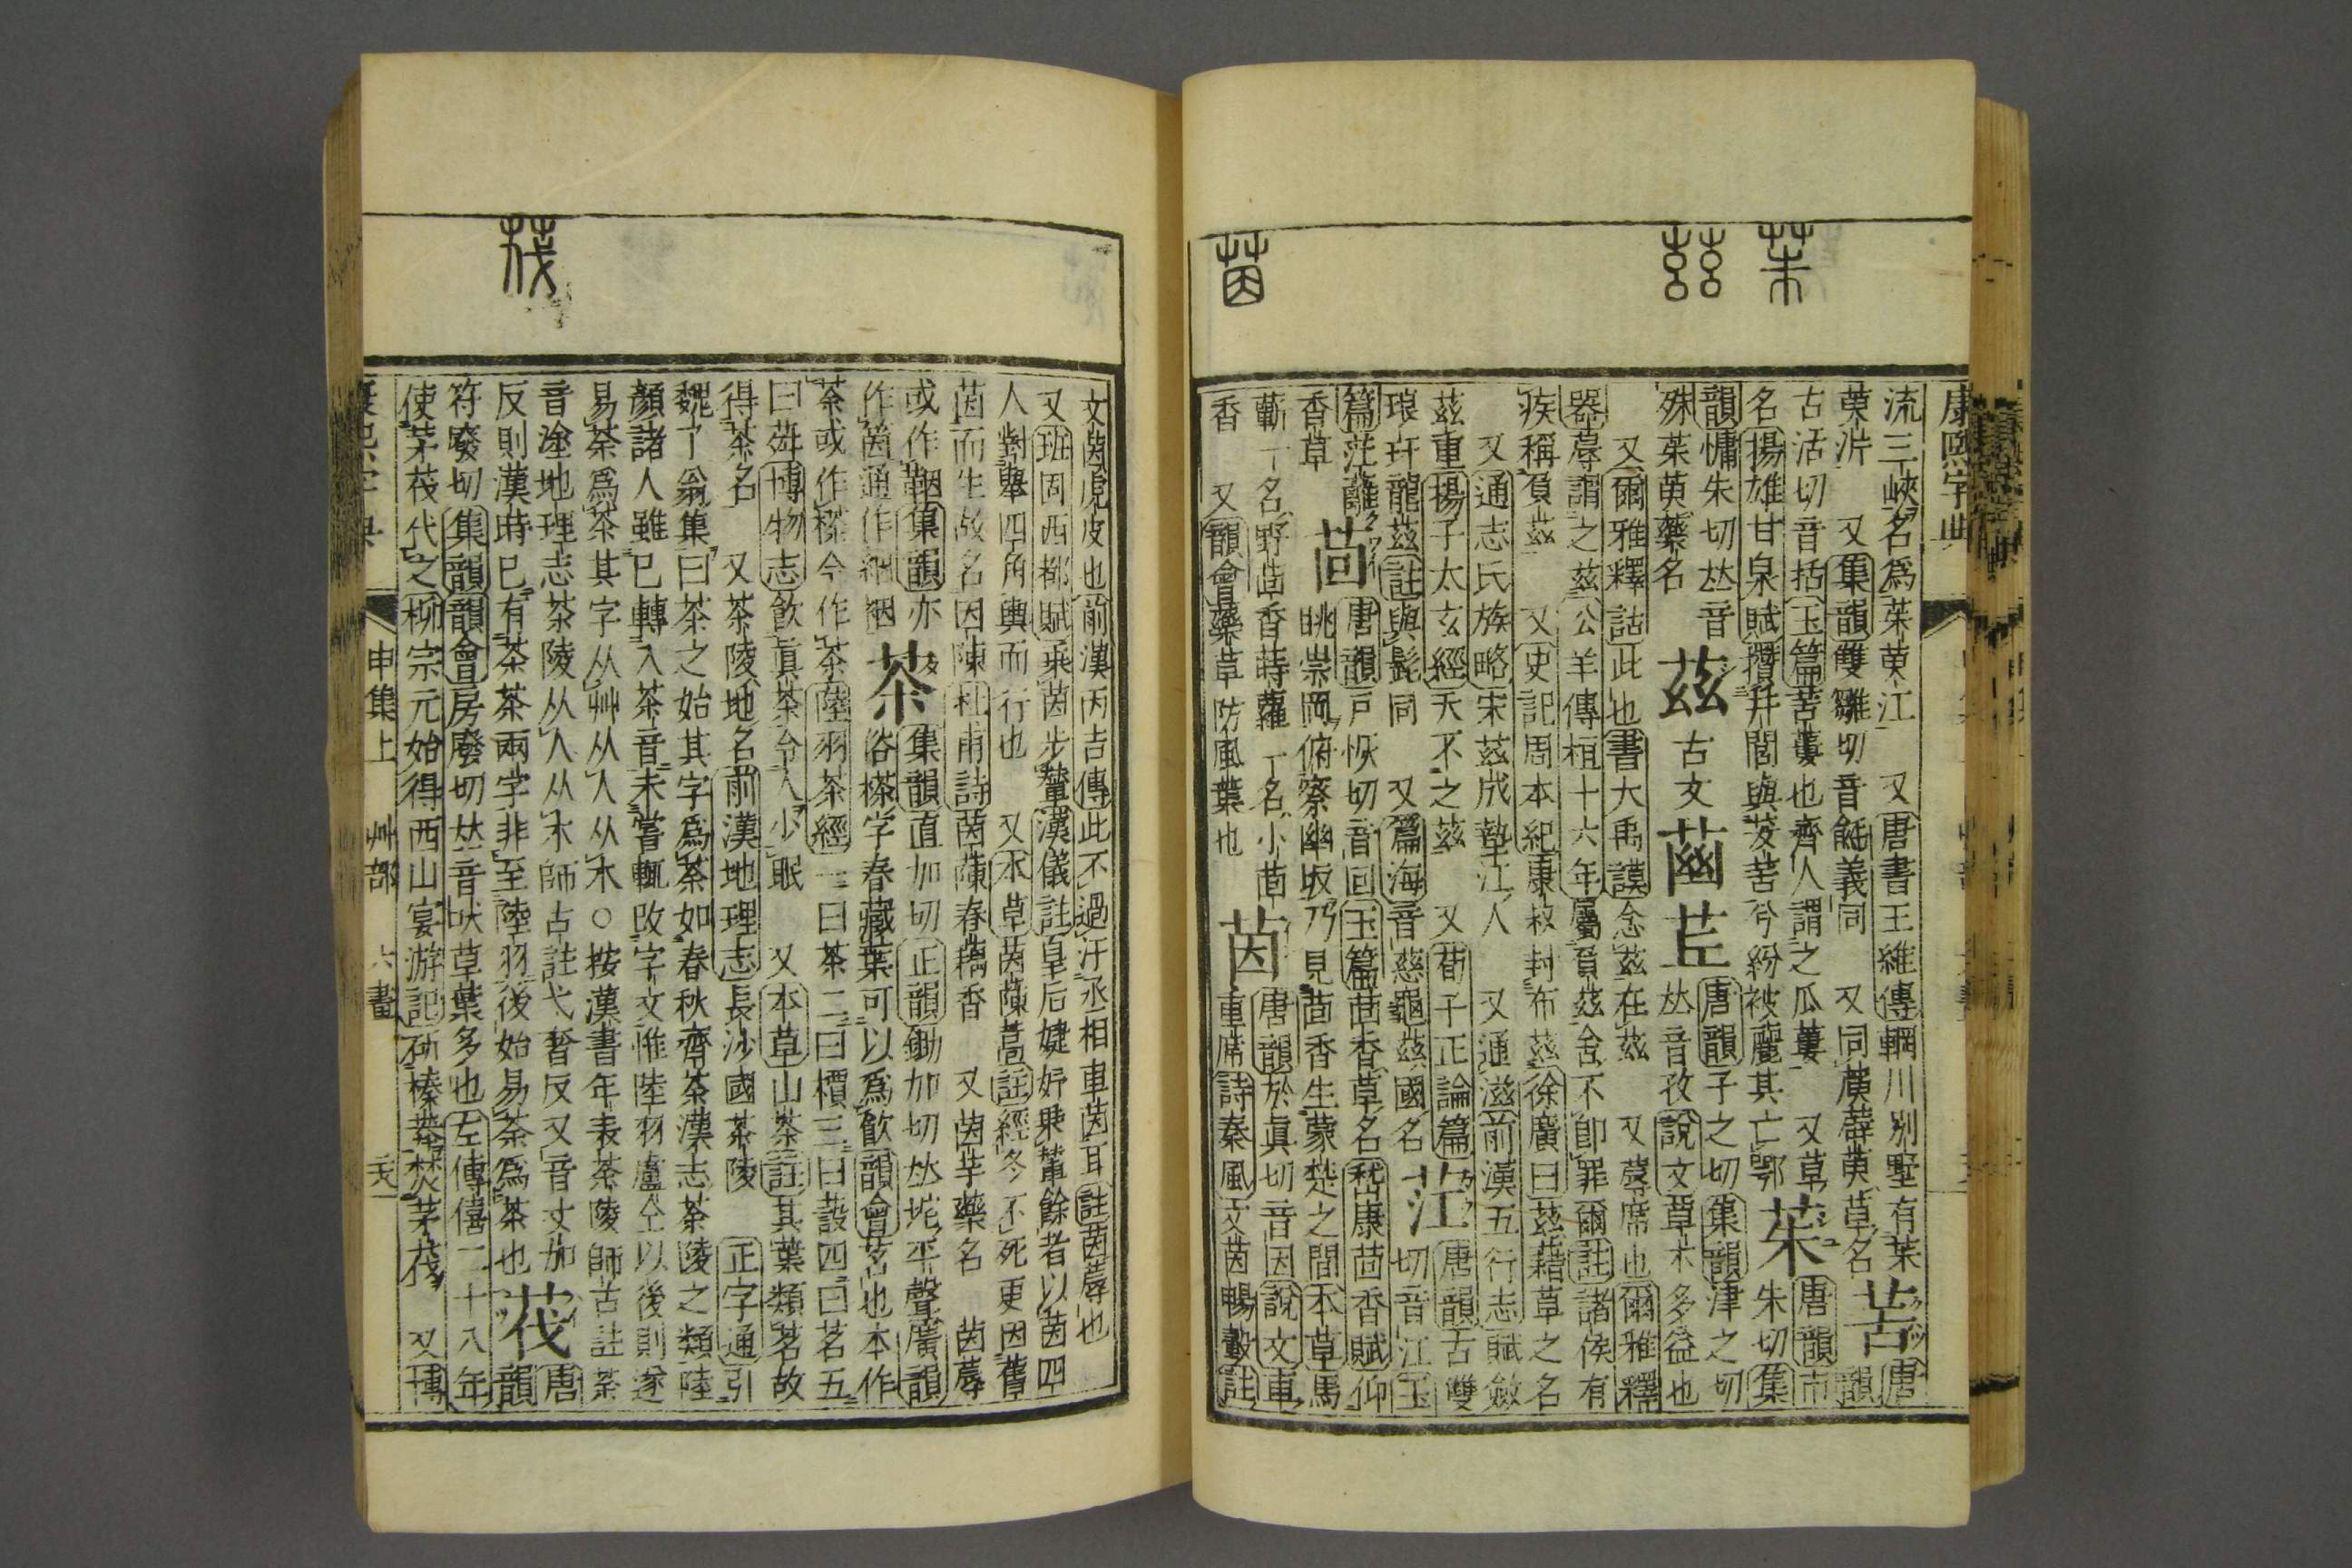 茱
茲
茵
康熙字典
流三峽名爲茱萸江　又唐書王維傳輞川別墅有茱
萸沜　又集韻雙雛切音毹義同　又同
萸草名
䒷
唐
韻
古活切音括玉篇苦蔞也齊人謂之瓜蔞　又草
名揚雄甘泉賦攢幷閭與茇䒷兮紛被麗其亡鄂
茱
唐韻市
朱切集
韻慵朱切𠀤音
殊茱萸藥名
茲
古文
唐韻子之切集韻津之切
𠀤音孜說文草木多益也
又爾雅釋詁此也書大禹謨念茲在茲　又蓐席也爾雅釋
器蓐謂之茲公羊傳桓十六年屬負茲舍不卽罪爾註諸侯有
疾稱負茲　又史記周本紀康叔封布茲徐廣曰茲藉草之名
又通志氏族略宋茲成墊江人　又通滋前漢五行志賦斂
茲重揚子太玄經天不之茲　又荀子正論篇
琅玕龍茲註與髭同　又篇海音慈龜茲國名
茳
唐韻古雙
切音江玉
篇茳蘺
香草
茴
唐韻戶恢切音回玉篇茴香草名嵇康茴香賦仰
眺崇岡俯察幽坂乃見茴香生蒙楚之間本草馬
蘄一名野茴香蒔蘿一名小茴
香　又韻會藥草防風葉也
茵
唐韻於眞切音因說文車
重席詩秦風文茵暢轂註
茷
文茵虎皮也前漢丙吉傳此不過汙丞相車茵耳註茵蓐也
又班固西都賦乘茵步輦漢儀註皇后婕妤乘輦餘者以茵四
人對舉四角輿而行也　又本草茵蔯蒿註經冬不死更因舊
茵而生故名因陳杜甫詩茵蔯春藕香　又茵芋藥名　茵蓐
或作鞇集韻亦
作筃通作絪裀
茶
集韻直加切正韻鋤加切𠀤垞平聲廣韻
俗㯠字春藏葉可以爲飲韻會茗也本作
荼或作㯠今作茶陸羽茶經一曰茶二曰檟三曰蔎四曰茗五
曰荈博物志飲眞茶令人少眠　又本草山茶註其葉類茗故
得茶名　又茶陵地名前漢地理志長沙國荼陵　正字通引
魏了翁集曰茶之始其字爲荼如春秋齊荼漢志荼陵之類陸
顏諸人雖已轉入茶音未嘗輒改字文惟陸羽盧仝以後則遂
易荼爲茶其字从艸从人从木○按漢書年表荼陵師古註荼
音塗地理志荼陵从人从木師古註弋奢反又音丈加
反則漢時已有荼茶兩字非至陸羽後始易荼爲茶也
茷
唐
韻
符廢切集韻韻會房廢切𠀤音吠草葉多也左傳僖二十八年
使茅茷代之柳宗元始得西山宴游記斫榛莽焚茅茷　又博
康熙字典　申集上　艸部　六畫